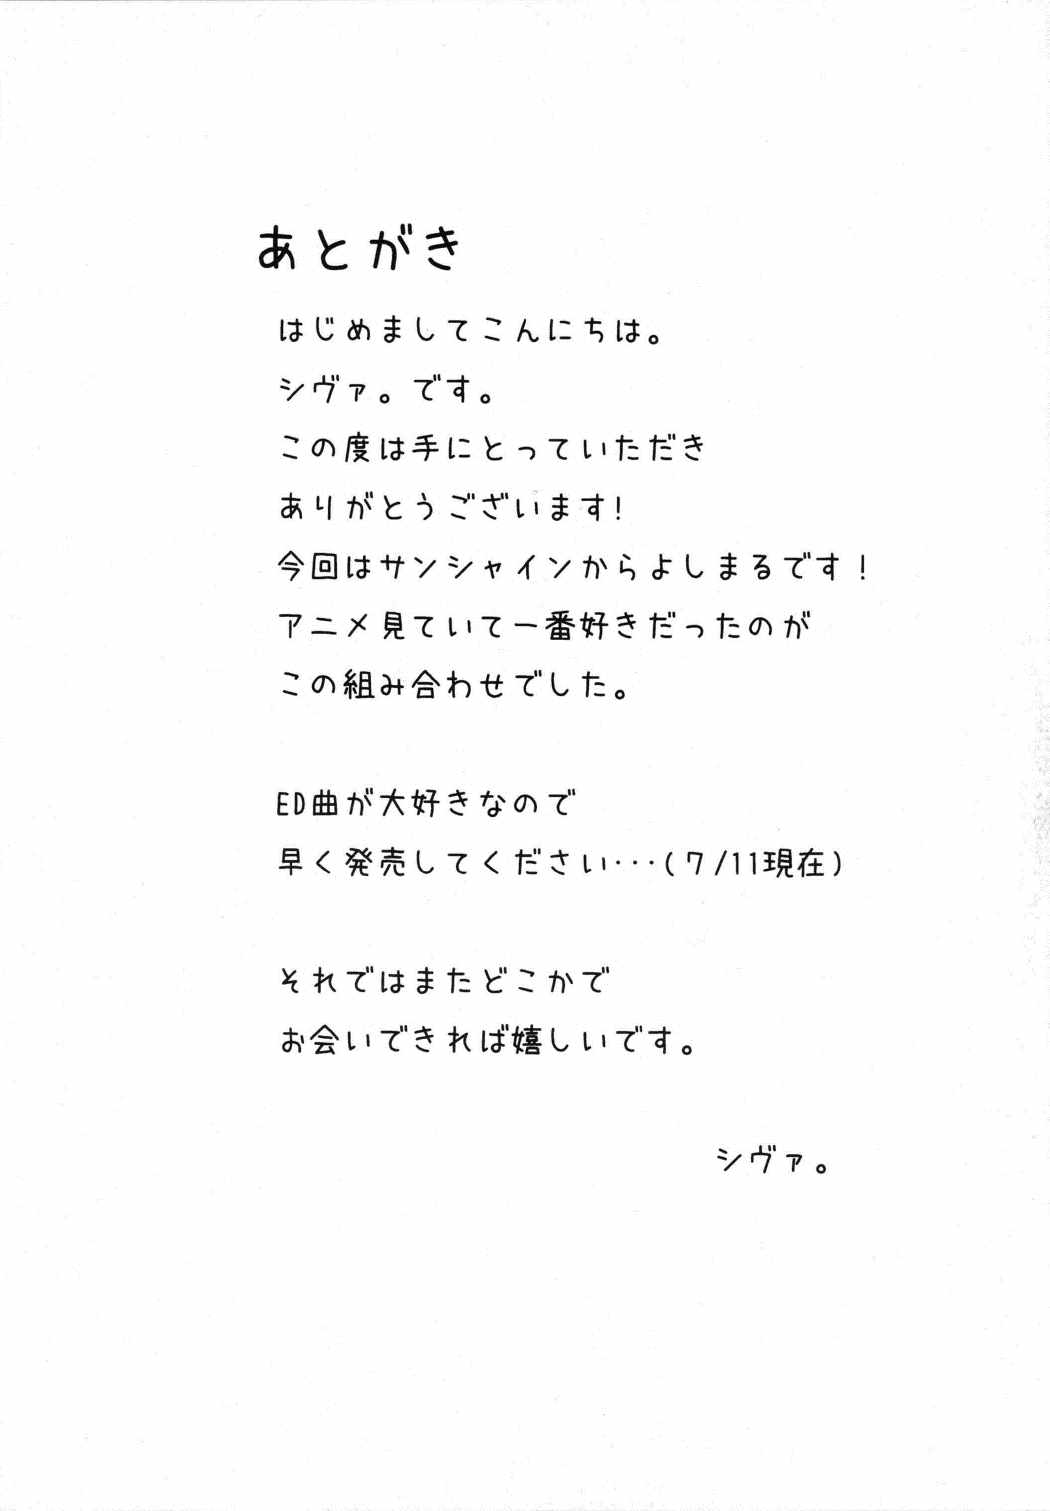 あとがき
はじめましてこんにちは。
シヴァ。です。
この度は手にとっていただき
ありがとうございます!
今回はサンシャインからよしまるです!
アニメ見ていて一番好きだったのが
この組み合わせでした。
ED曲が大好きなので
早く発売してください…(7/11現在)
それではまたどこかで
お会いできれば嬉しいです。
シヴァ。